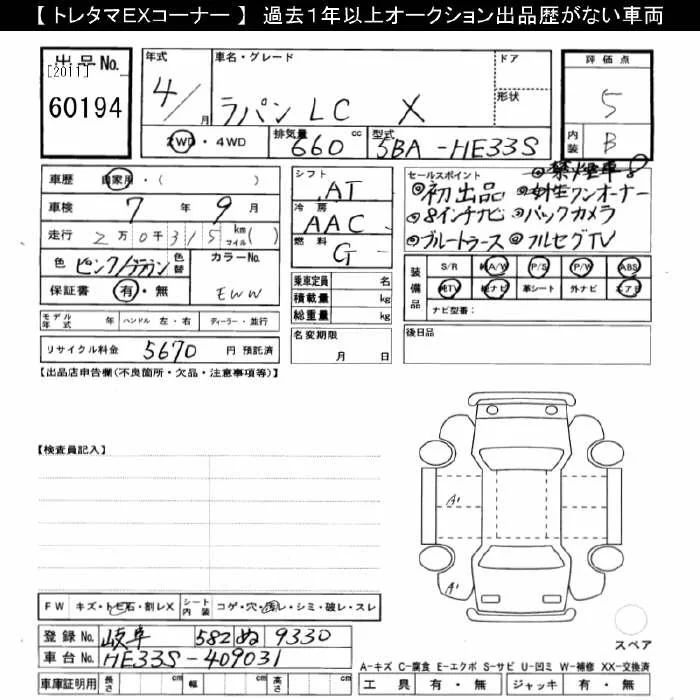 【 トレタマEXコーナー 】 過去1年以上オークション出品歴がない車両
出品No.
[2011]
60194
年式
4/ 月
車名・グレード
ラパンLC X
ドア
形状
評価点
5
内装
B
2WD・4WD
排気量
660 cc
型式
5BA-HE33S
車歴 自家用・( )
車検 7年 9月
走行 2万0千315 kmマイル( )
色 ピンク/ 色替
カラーNo.
EWW
保証書 有・無
モデル年式 年 ハンドル 左・右 ディーラー・並行
リサイクル料金 5670 円 預託済
シフト AT
冷房 AAC
燃料 G
乗車定員 名
積載量 kg
総重量 kg
名変期限
月 日
セールスポイント
◎禁煙車
◎初出品 ◎女性ワンオーナー
◎8インチナビ ◎バックカメラ
◎ブルートゥース ◎フルセグTV
装備品
S/R 純A/W P/S P/W ABS
純TV 純ナビ 革シート 外ナビ エアB
ナビ型番:
後日品
【出品店申告欄(不良箇所・欠品・注意事項等)】
【検査員記入】
A1
A1
FW キズ・トビ石・割レX シート内装 コゲ・穴・汚レ・シミ・破レ・スレ
登録No. 岐阜 582 ぬ 9330
車台No. HE33S-409031
車庫証明用 長さ cm 幅 cm 高さ cm
スペア
A-キズ C-腐食 E-エクボ S-サビ U-凹ミ W-補修 XX-交換済
工具 有・無 ジャッキ 有・無